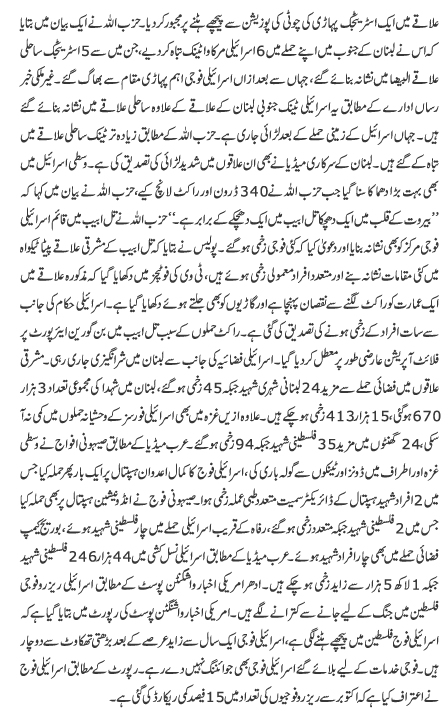 علاقے میں ایک اسٹریٹجک پہاڑی کی چوٹی کی پوزیشن سے پیچھے ہٹنے پر مجبور کردیا۔ حزب اللہ نے ایک بیان میں بتایا
کہ اس نے لبنان کے جنوب میں اپنے حملے میں 6 اسرائیلی مرکاوا ٹینک تباہ کردیے، جن میں سے 5 اسٹریٹیجک ساحلی
علاقے البیضا میں نشانہ بنائے گئے، جہاں سے بعد ازاں اسرائیلی فوجی اہم پہاڑی مقام سے بھاگ گئے۔ غیر ملکی خبر
رساں ادارے کے مطابق یہ اسرائیلی ٹینک جنوبی لبنان کے علاقے کے علاوہ ساحلی علاقے میں نشانہ بنائے گئے
ہیں۔ جہاں اسرائیل کے زمینی حملے کے بعد لڑائی جاری ہے۔ حزب اللہ کے مطابق زیادہ تر ٹینک ساحلی علاقے میں
تباہ کے گئے ہیں۔ لبنان کے سرکاری میڈیا نے بھی ان علاقوں میں شدید لڑائی کی تصدیق کی ہے۔ وسطی اسرائیل میں
بھی بہت بڑا دھماکا سنا گیا جب حزب اللہ نے 340 ڈرون اور راکٹ لانچ کیے، حزب اللہ نے بیان میں کہا کہ
”بیروت کے قلب میں ایک دھچکا تل ابیب میں ایک دھچکے کے برابر ہے۔“ حزب اللہ نے تل ابیب میں قائم اسرائیلی
فوجی مرکز کو بھی نشانہ بنایا اور دعویٰ کیا کہ کئی فوجی زخمی ہوگئے۔ پولیس نے بتایا کہ تل ابیب کے مشرقی علاقے پیٹا ٹیکواہ
میں کئی مقامات نشانہ بنے اور متعدد افراد معمولی زخمی ہوئے ہیں، ٹی وی کی فوٹیجز میں دکھایا گیا کہ مذکورہ علاقے میں
ایک عمارت کو راکٹ لگنے سے نقصان پہنچا ہے اور گاڑیوں کو بھی جلتے ہوئے دکھایا گیا ہے۔ اسرائیلی حکام کی جانب
سے سات افراد کے زخمی ہونے کی تصدیق کی گئی ہے۔ راکٹ حملوں کے سبب تل ابیب میں بن گورین ایئرپورٹ پر
فلائٹ آپریشن عارضی طور پر معطل کردیا گیا۔ اسرائیلی فضائیہ کی جانب سے لبنان میں شرانگیزی جاری رہی۔ مشرقی
علاقوں میں فضائی حملے سے مزید 24 لبنانی شہری شہید جبکہ 45 زخمی ہوگئے، لبنان میں شہدا کی مجموعی تعداد 3 ہزار
670 ہوگئی، 15 ہزار 413 زخمی ہوچکے ہیں۔ علاوہ ازیں غزہ میں بھی اسرائیلی فورسز کے وحشیانہ حملوں میں کمی نہ آ
سکی، 24 گھنٹوں میں مزید 35 فلسطینی شہید جبکہ 94 زخمی ہوگئے۔ عرب میڈیا کے مطابق صیہونی افواج نے وسطی
غزہ اور اطراف میں ڈونز اور ٹینکوں سے گولہ باری کی، اسرائیلی فوج کا کمال اعدوان ہسپتال پر ایک بار پھر حملہ کیا جس
میں 2 افراد شہید ہسپتال کے ڈائریکٹر سمیت متعدد طبی عملہ زخمی ہوا۔ صیہونی فوج نے انڈونیشین ہسپتال پر بھی حملہ کیا
جس میں 2 فلسطینی شہید جبکہ متعدد زخمی ہوگئے، رفاہ کے قریب اسرائیلی حملے میں چار فلسطینی شہید ہوئے، بوریج کیمپ
فضائی حملے میں بھی چار افراد شہید ہوئے۔ عرب میڈیا کے مطابق اسرائیلی نسل کشی میں 44 ہزار 246 فلسطینی شہید
جبکہ 1 لاکھ 5 ہزار سے زاید زخمی ہوچکے ہیں۔ ادھر امریکی اخبار واشنگٹن پوسٹ کے مطابق اسرائیلی ریزرو فوجی
فلسطین میں جنگ کے لیے جانے سے کترانے لگے ہیں۔ امریکی اخبار واشنگٹن پوسٹ کی رپورٹ میں بتایا گیا ہے کہ
اسرائیلی فوج فلسطین میں پیچھے ہٹنے لگی ہے، اسرائیلی فوجی ایک سال سے زاید عرصے کے بعد بڑھتی تھکاوٹ سے دوچار
ہیں۔ فوجی خدمات کے لیے بلائے گئے اسرائیلی فوجی بھی جوائننگ نہیں دے رہے۔ رپورٹ کے مطابق اسرائیلی فوج
نے اعتراف کیا ہے کہ اکتوبر سے ریزرو فوجیوں کی تعداد میں 15 فیصد کمی ریکارڈ کی گئی ہے۔